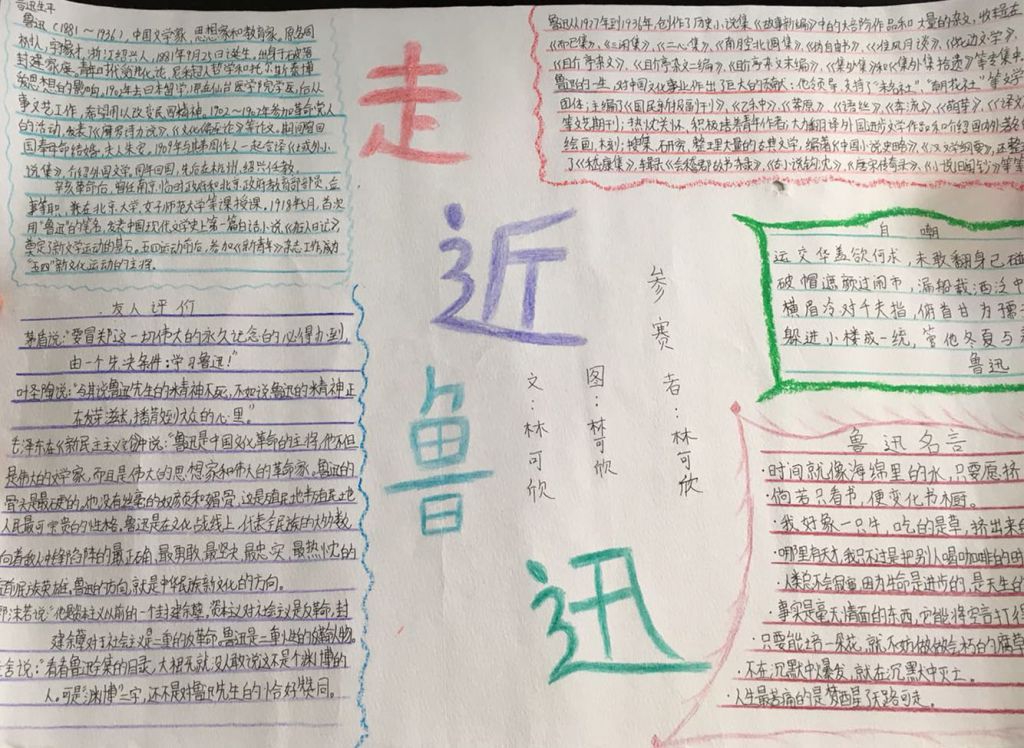 鲁迅生平
鲁迅（1881～1936），中国文学家、思想家和教育家，原名周
树人，字豫才，浙江绍兴人，1881年9月25日诞生，出身于破落
封建家庭，青年时代受进化论、尼采超人哲学和托尔斯泰博
爱思想的影响，1902年去日本留学，原在仙台医学院学医，后从
事文艺工作，希望用以改变民国精神。1902～1907年参加革命党人
的活动，发表《摩罗诗力说》，《文化偏至论》等论文。期间曾回
国奉母命结婚，夫人朱安。1909年与其弟周作人一起合译《域外小
说集》，介绍外国文学，同年回国，先后在杭州、绍兴任教。
辛亥革命后，曾任南京临时政府和北京政府教育部部员、佥
事等职，兼在北京大学、女子师范大学等课授课。1918年5月，首次
用"鲁迅"的笔名，发表中国现代文学史上第一篇白话小说《狂人日记》，
奠定了新文学运动的基石。五四运动前后，参加《新青年》杂志工作，成为
"五四"新文化运动的主将。
走
近
鲁
迅
鲁迅从1927年到1936年，创作了历史小说集《故事新编》中的大部阶作品和大量的杂文，收辑在
《而已集》、《三闲集》、《二心集》、《南腔北调集》、《伪自由书》、《准风月谈》、《花边文学》、
《且介亭杂文》、《且介亭杂文二编》、《且介亭杂文末编》、《集外集》和《集外集拾遗》等专集中。
鲁迅的一生，对中国文化事业作出了巨大的贡献：他领导、支持了"未名社"、"朝花社"等文学
团体；主编了《国民新报副刊》、《乙种》、《莽原》、《语丝》、《奔流》、《萌芽》、《译文》
等文艺期刊；热忱关怀、积极培养青年作者；大力翻译外国进步文学作品和介绍国内外著名
绘画、木刻；搜集、研究、整理大量的古典文学，编著《中国小说史略》、《汉文学纲要》，还整
了《嵇康集》，辑录《会稽郡故书杂录》、《古小说钩沉》、《唐宋传奇录》、《小说旧闻钞》等等
自嘲
运交华盖欲何求，未敢翻身已碰
破帽遮颜过闹市，漏船载酒泛中
横眉冷对千夫指，俯首甘为孺
躲进小楼成一统，管他冬夏与
鲁迅
参赛者：林可欣
图：林可欣
文：林可欣
友人评价
茅盾说："要冒关耶这一切伟大的永久记念的必得办到，
由一个先决条件：学习鲁迅！"
叶圣陶说："与其说鲁迅先生的精神不死，不如说鲁迅的精神正
在发芽滋长，播育效到大众的心里。"
毛泽东在《新民主主义论》中说："鲁迅是中国文化革命的主将，他不但
是伟大的文学家，而且是伟大的思想家和伟大的革命家，鲁迅的
骨头是最硬的，他没有丝毫的奴颜和媚骨，这是殖民地半殖民地
人民最可宝贵的性格。鲁迅是在文化战线上，代表全民族的大多数，
向着敌人冲锋陷阵的最正确、最勇敢、最坚决、最忠实、最热忱的
空前民族英雄。鲁迅的方向，就是中华民族新文化的方向。
郭沫若说："他是资本主义以前的一个封建余孽，资本主义对社会主义是反革命，封
建余孽对于社会主义是二重的反革命，鲁迅是二重性的革命人物。
老舍说："看看鲁迅全集的目录，大概先就没人敢说这不是个渊博的
人。可是"渊博"二字，还不是对鲁迅先生的恰好赞同。
鲁迅名言
·时间就像海绵里的水，只要愿挤
·倘若只看书，便变化书橱。
·我好象一只牛，吃的是草，挤出来
·哪里有天才，我只不过是把别人喝咖啡的时
·人类总不会寂寞因为生命是进步的，是天生的
·事实是毫无情面的东西，它能将空言打
·只要能培一朵花，就不妨做做会朽的腐草
·不在沉默中爆发，就在沉默中灭亡。
·人生最苦痛的是梦醒了无路可走。